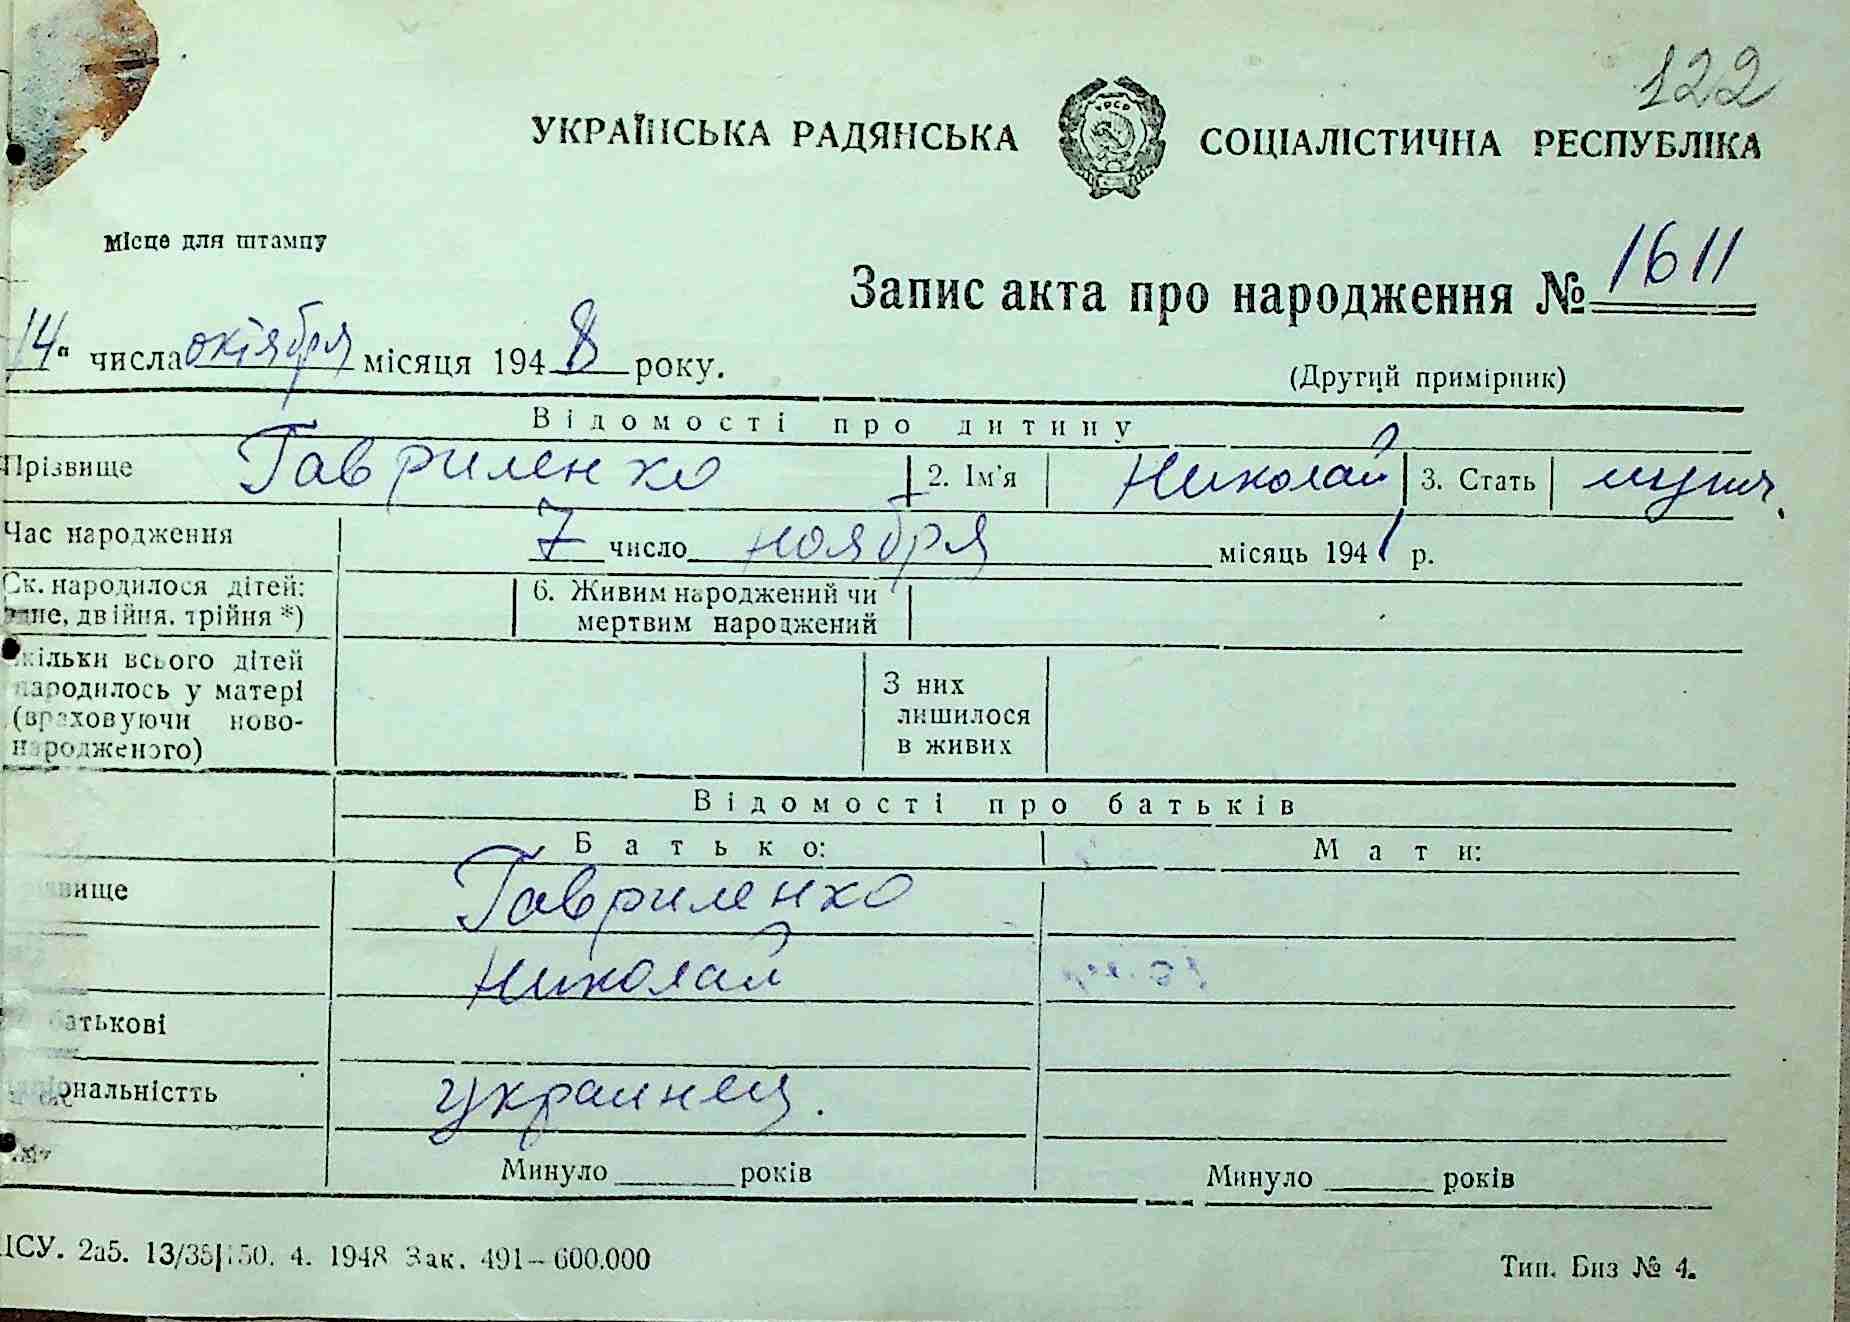 122
УКРАЇНСЬКА РАДЯНСЬКА СОЦІАЛІСТИЧНА РЕСПУБЛІКА
УРСР
Місце для штампу
Запис акта про народження № 1611
14" числа октября місяця 1948 року.
(Другий примірник)
Відомості про дитину
Прізвище Гавриленко 2. Ім'я Николай 3. Стать мужч.
Час народження 7 число ноября місяць 1941 р.
Ск. народилося дітей: 6. Живим народжений чи
одне, двійня, трійня *) мертвим народжений
Скільки всього дітей
народилось у матері З них
(враховуючи ново- лишилося
народженого) в живих
Відомості про батьків
Батько: Мати:
Гавриленко
Николай
батькові
національністть украинец.
Минуло ______ років Минуло ______ років
ЦСУ. 2а5. 4. 1948 Зак. 491—600.000
Тип. Биз № 4.